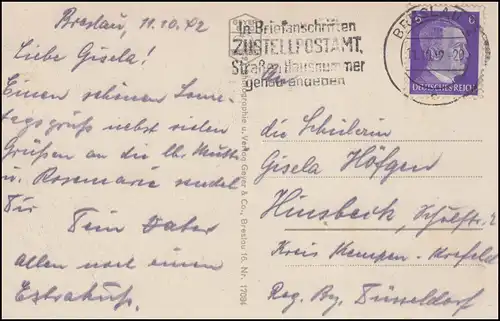 Breslau, 11.10.42
Liebe Gisela!
Einen schönen Sonn-
tagsgruß nebst vielen
Grüßen an die lb. Mutti
u. Rosemarie sendet
Dir
Dein Vater
allen noch einen
Extrakuß.
Photographie u. Verlag Geyer & Co., Breslau 16. Nr. 1709
In Briefanschriften
ZUSTELLPOSTAMT,
Straße, Hausnummer
genau angeben
BRESLAU
11.10.42-20
6
DEUTSCHES REICH
An
die Schülerin
Gisela Höfgen
Hinsbeck, Schulstr.
Kreis Kempen-Krefeld
Reg. Bz. Düsseldorf